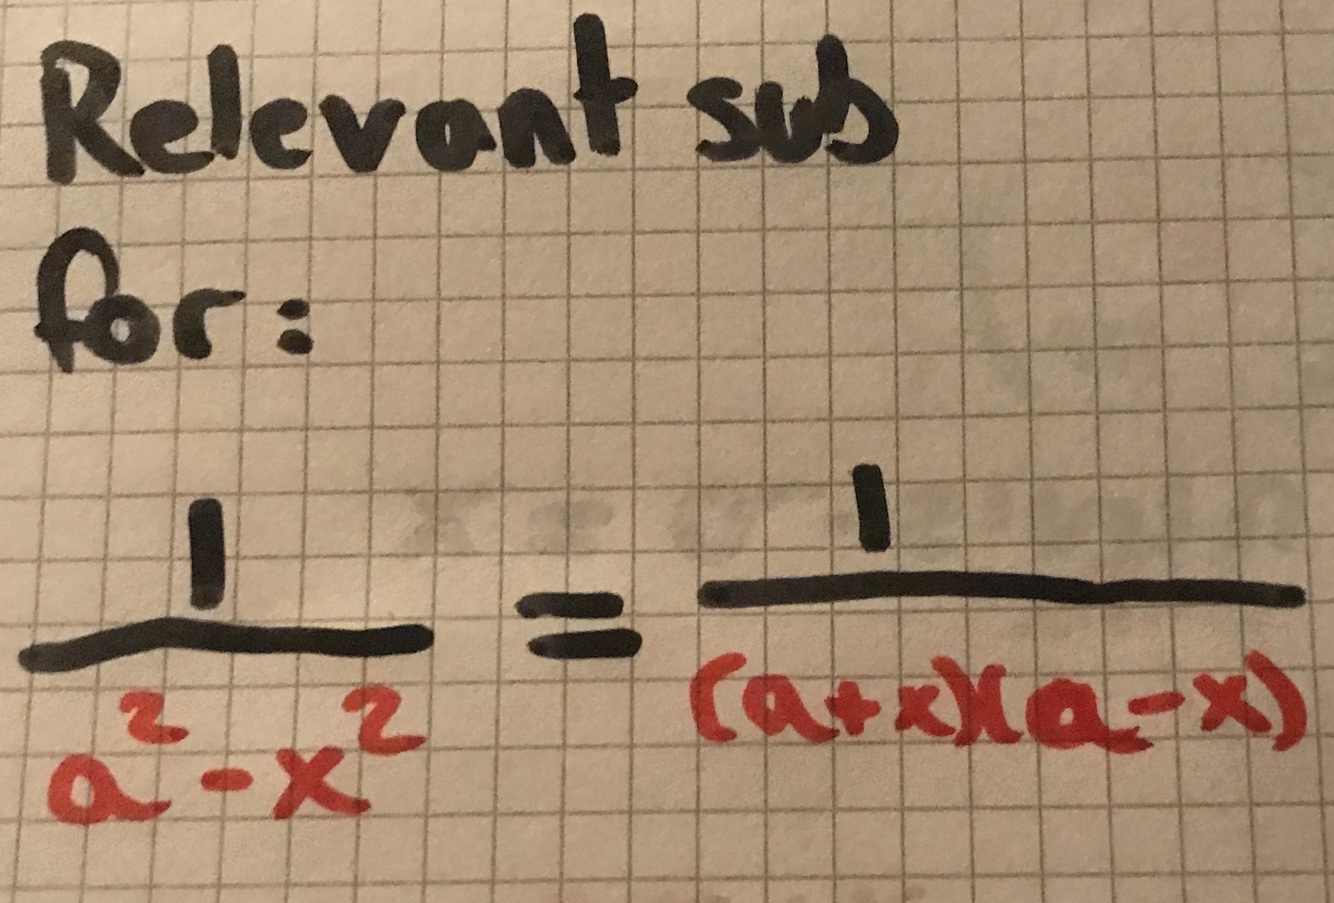 Relevant sub
for:
1 / a² - x² = 1 / (a+x)(a-x)